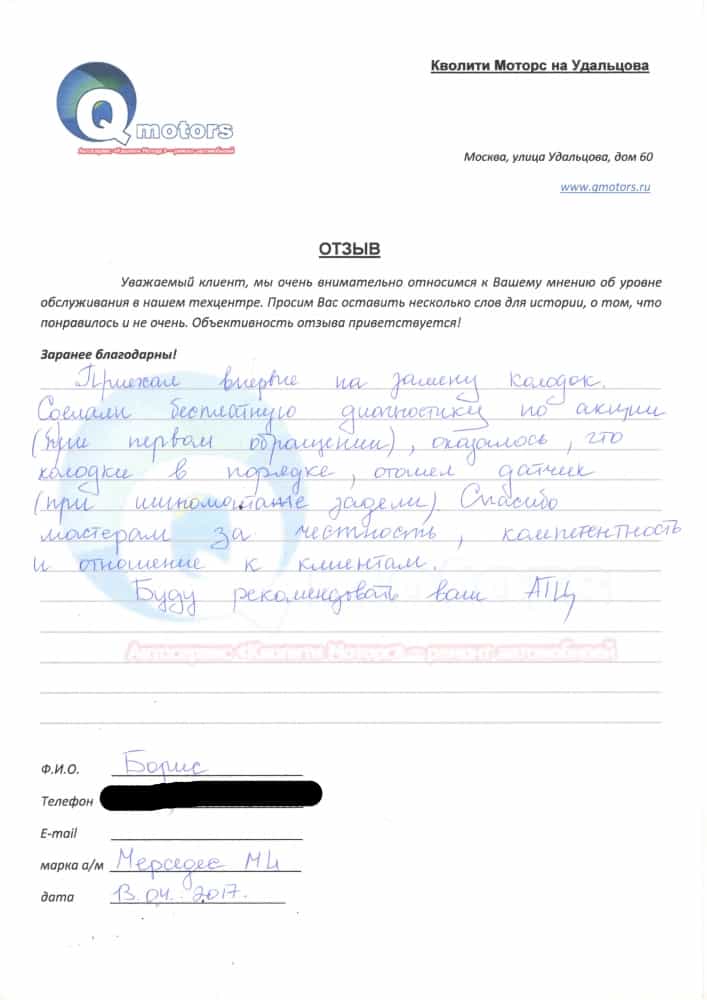 Кволити Моторс на Удальцова
Q motors
Автосервис «Кволити Моторс» – ремонт автомобилей
Москва, улица Удальцова, дом 60
www.qmotors.ru
ОТЗЫВ
Уважаемый клиент, мы очень внимательно относимся к Вашему мнению об уровне
обслуживания в нашем техцентре. Просим Вас оставить несколько слов для истории, о том, что
понравилось и не очень. Объективность отзыва приветствуется!
Заранее благодарны!
Приехал впервые на замену колодок.
Сделали бесплатную диагностику по акции
(при первом обращении), оказалось, что
колодки в порядке, отошел датчик
(при шиномонтаже задели). Спасибо
мастерам за честность, компетентность
и отношение к клиентам.
Буду рекомендовать ваш АТЦ
Автосервис «Кволити Моторс» – ремонт автомобилей
Ф.И.О. Борис
Телефон
E-mail
марка а/м Мерседес МЛ
дата 13.04.2017.